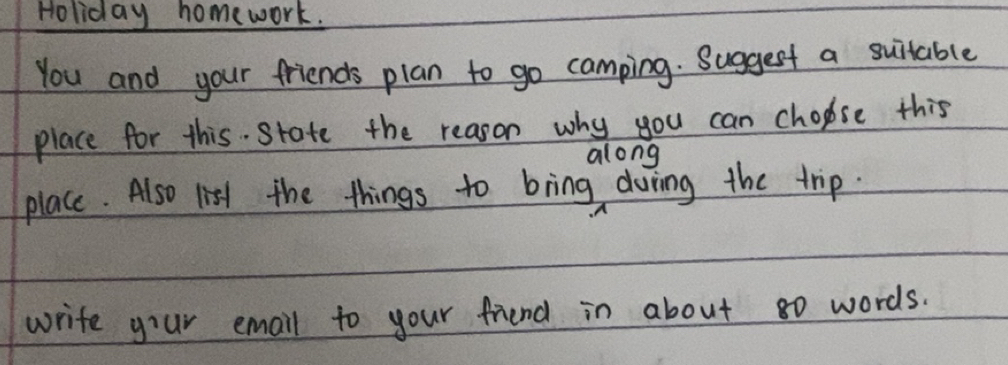 Holiday homework.
You and your friends plan to go camping. Suggest a suitable
place for this. State the reason why you can choose this
along
place. Also list the things to bring during the trip.
write your email to your friend in about 80 words.